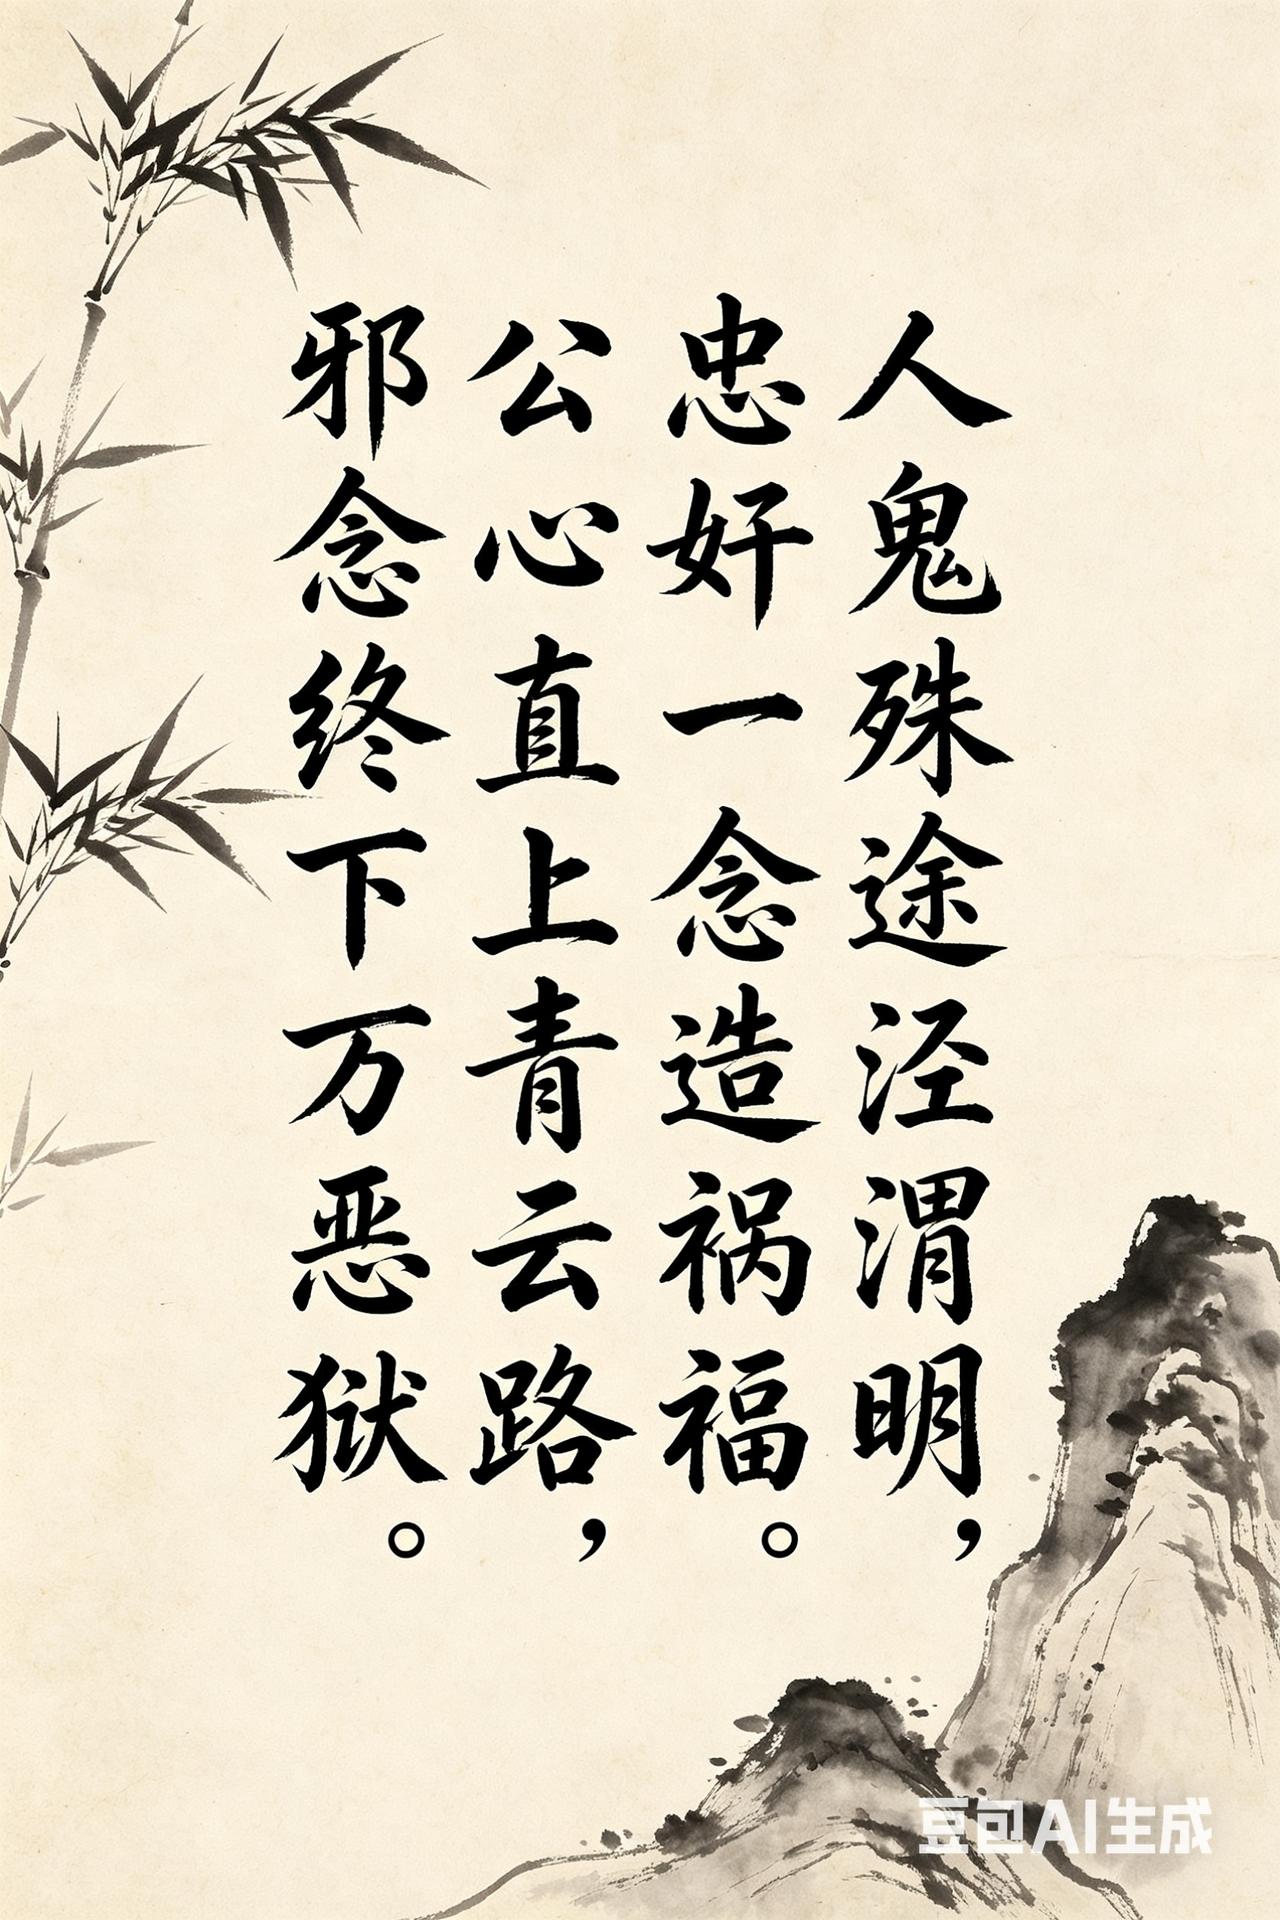 人鬼殊途泾渭明，
忠奸一念造祸福。
公心直上青云路，
邪念终下万恶狱。
豆包AI生成